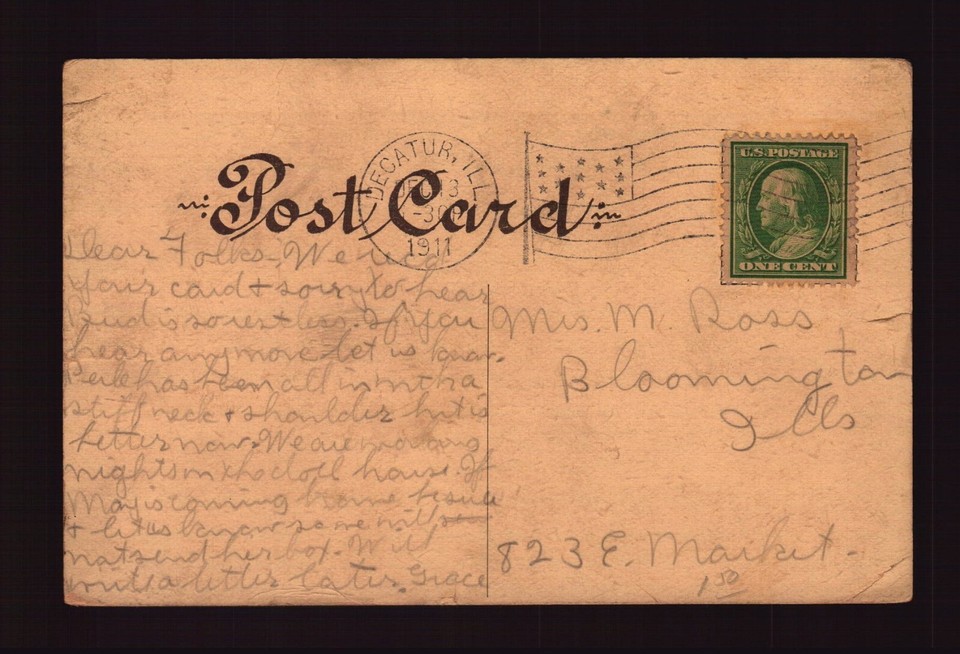 Post Card
DECATUR, ILL.
DEC 3
1911
U.S. POSTAGE
ONE CENT
Dear Folks, We
your card + sorry to hear
is so restless. If you
hear any more let us know.
has been all in with a
stiff neck + shoulder but is
better now. We are working
nights on the doll house. If
May is coming home be sure
+ let us know so we will
not send her box. Will
write a letter later. Grace
Mrs. M. Ross
Bloomington
Ills
823 E. Market.
1.50